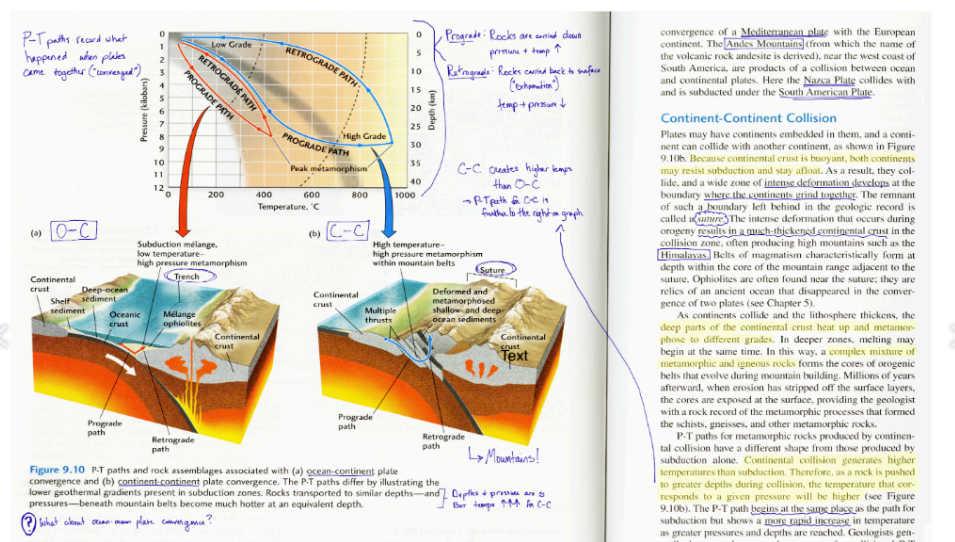 P-T paths record what
happened when plates
came together ("converged")
Pressure (kilobars)
0
1
2
3
4
5
6
7
8
9
10
11
12
0
200
400
600
800
1000
Temperature, °C
0
5
10
15
20
25
30
35
40
Depth (km)
Low Grade
RETROGRADE PATH
RETROGRADE PATH
PROGRADE PATH
PROGRADE PATH
High Grade
Peak metamorphism
Prograde: Rocks are carried down
pressure + temp ↑
Retrograde: Rocks carried back to surface
("exhumation")
temp + pressure ↓
C-C creates higher temps
than O-C
→ P-T path for C-C is
further to the right on graph
(a) O-C
Subduction mélange,
low temperature–
high pressure metamorphism
Trench
Continental
crust
Shelf
sediment
Deep-ocean
sediment
Oceanic
crust
Mélange
ophiolites
Continental
crust
Prograde
path
Retrograde
path
(b) C-C
High temperature–
high pressure metamorphism
within mountain belts
Suture
Continental
crust
Multiple
thrusts
Deformed and
metamorphosed
shallow- and deep-
ocean sediments
Continental
crust
Text
Prograde
path
Retrograde
path
↳ Mountains!
Figure 9.10 P-T paths and rock assemblages associated with (a) ocean-continent plate
convergence and (b) continent-continent plate convergence. The P-T paths differ by illustrating the
lower geothermal gradients present in subduction zones. Rocks transported to similar depths—and
pressures—beneath mountain belts become much hotter at an equivalent depth.
Depths + pressure are ≈
But temps ↑↑↑ for C-C
? What about ocean-ocean plate convergence?
convergence of a Mediterranean plate with the European
continent. The Andes Mountains (from which the name of
the volcanic rock andesite is derived), near the west coast of
South America, are products of a collision between ocean
and continental plates. Here the Nazca Plate collides with
and is subducted under the South American Plate.
Continent-Continent Collision
Plates may have continents embedded in them, and a conti-
nent can collide with another continent, as shown in Figure
9.10b. Because continental crust is buoyant, both continents
may resist subduction and stay afloat. As a result, they col-
lide, and a wide zone of intense deformation develops at the
boundary where the continents grind together. The remnant
of such a boundary left behind in the geologic record is
called a suture. The intense deformation that occurs during
orogeny results in a much-thickened continental crust in the
collision zone, often producing high mountains such as the
Himalayas. Belts of magmatism characteristically form at
depth within the core of the mountain range adjacent to the
suture. Ophiolites are often found near the suture; they are
relics of an ancient ocean that disappeared in the conver-
gence of two plates (see Chapter 5).
As continents collide and the lithosphere thickens, the
deep parts of the continental crust heat up and metamor-
phose to different grades. In deeper zones, melting may
begin at the same time. In this way, a complex mixture of
metamorphic and igneous rocks forms the cores of orogenic
belts that evolve during mountain building. Millions of years
afterward, when erosion has stripped off the surface layers,
the cores are exposed at the surface, providing the geologist
with a rock record of the metamorphic processes that formed
the schists, gneisses, and other metamorphic rocks.
P-T paths for metamorphic rocks produced by continen-
tal collision have a different shape from those produced by
subduction alone. Continental collision generates higher
temperatures than subduction. Therefore, as a rock is pushed
to greater depths during collision, the temperature that cor-
responds to a given pressure will be higher (see Figure
9.10b). The P-T path begins at the same place as the path for
subduction but shows a more rapid increase in temperature
as greater pressures and depths are reached. Geologists gen-